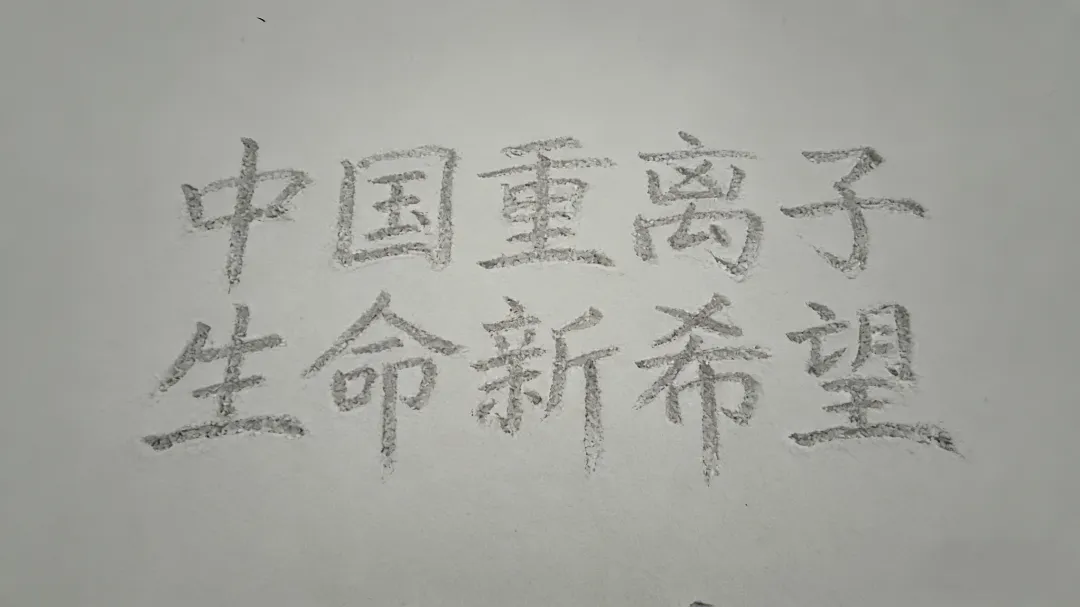 中国重离子
生命新希望